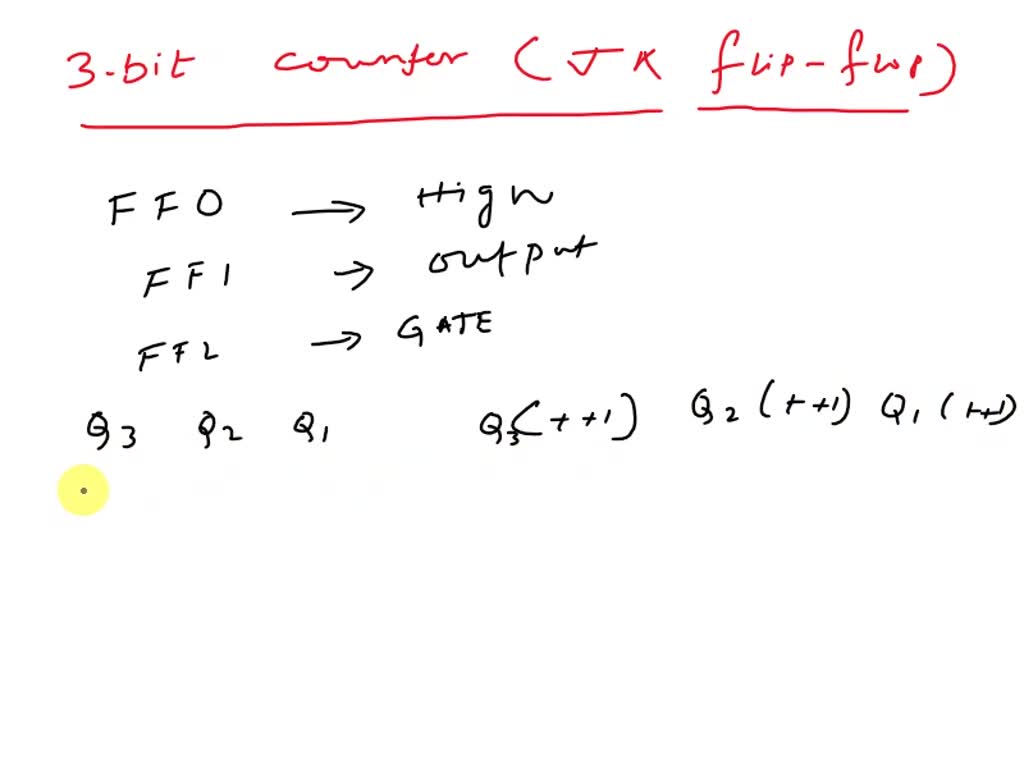 3-bit counter (JK flip-flop)
FF0 → High
FF1 → output
FF2 → GATE
Q3 Q2 Q1 Q3(t+1) Q2(t+1) Q1(t+1)